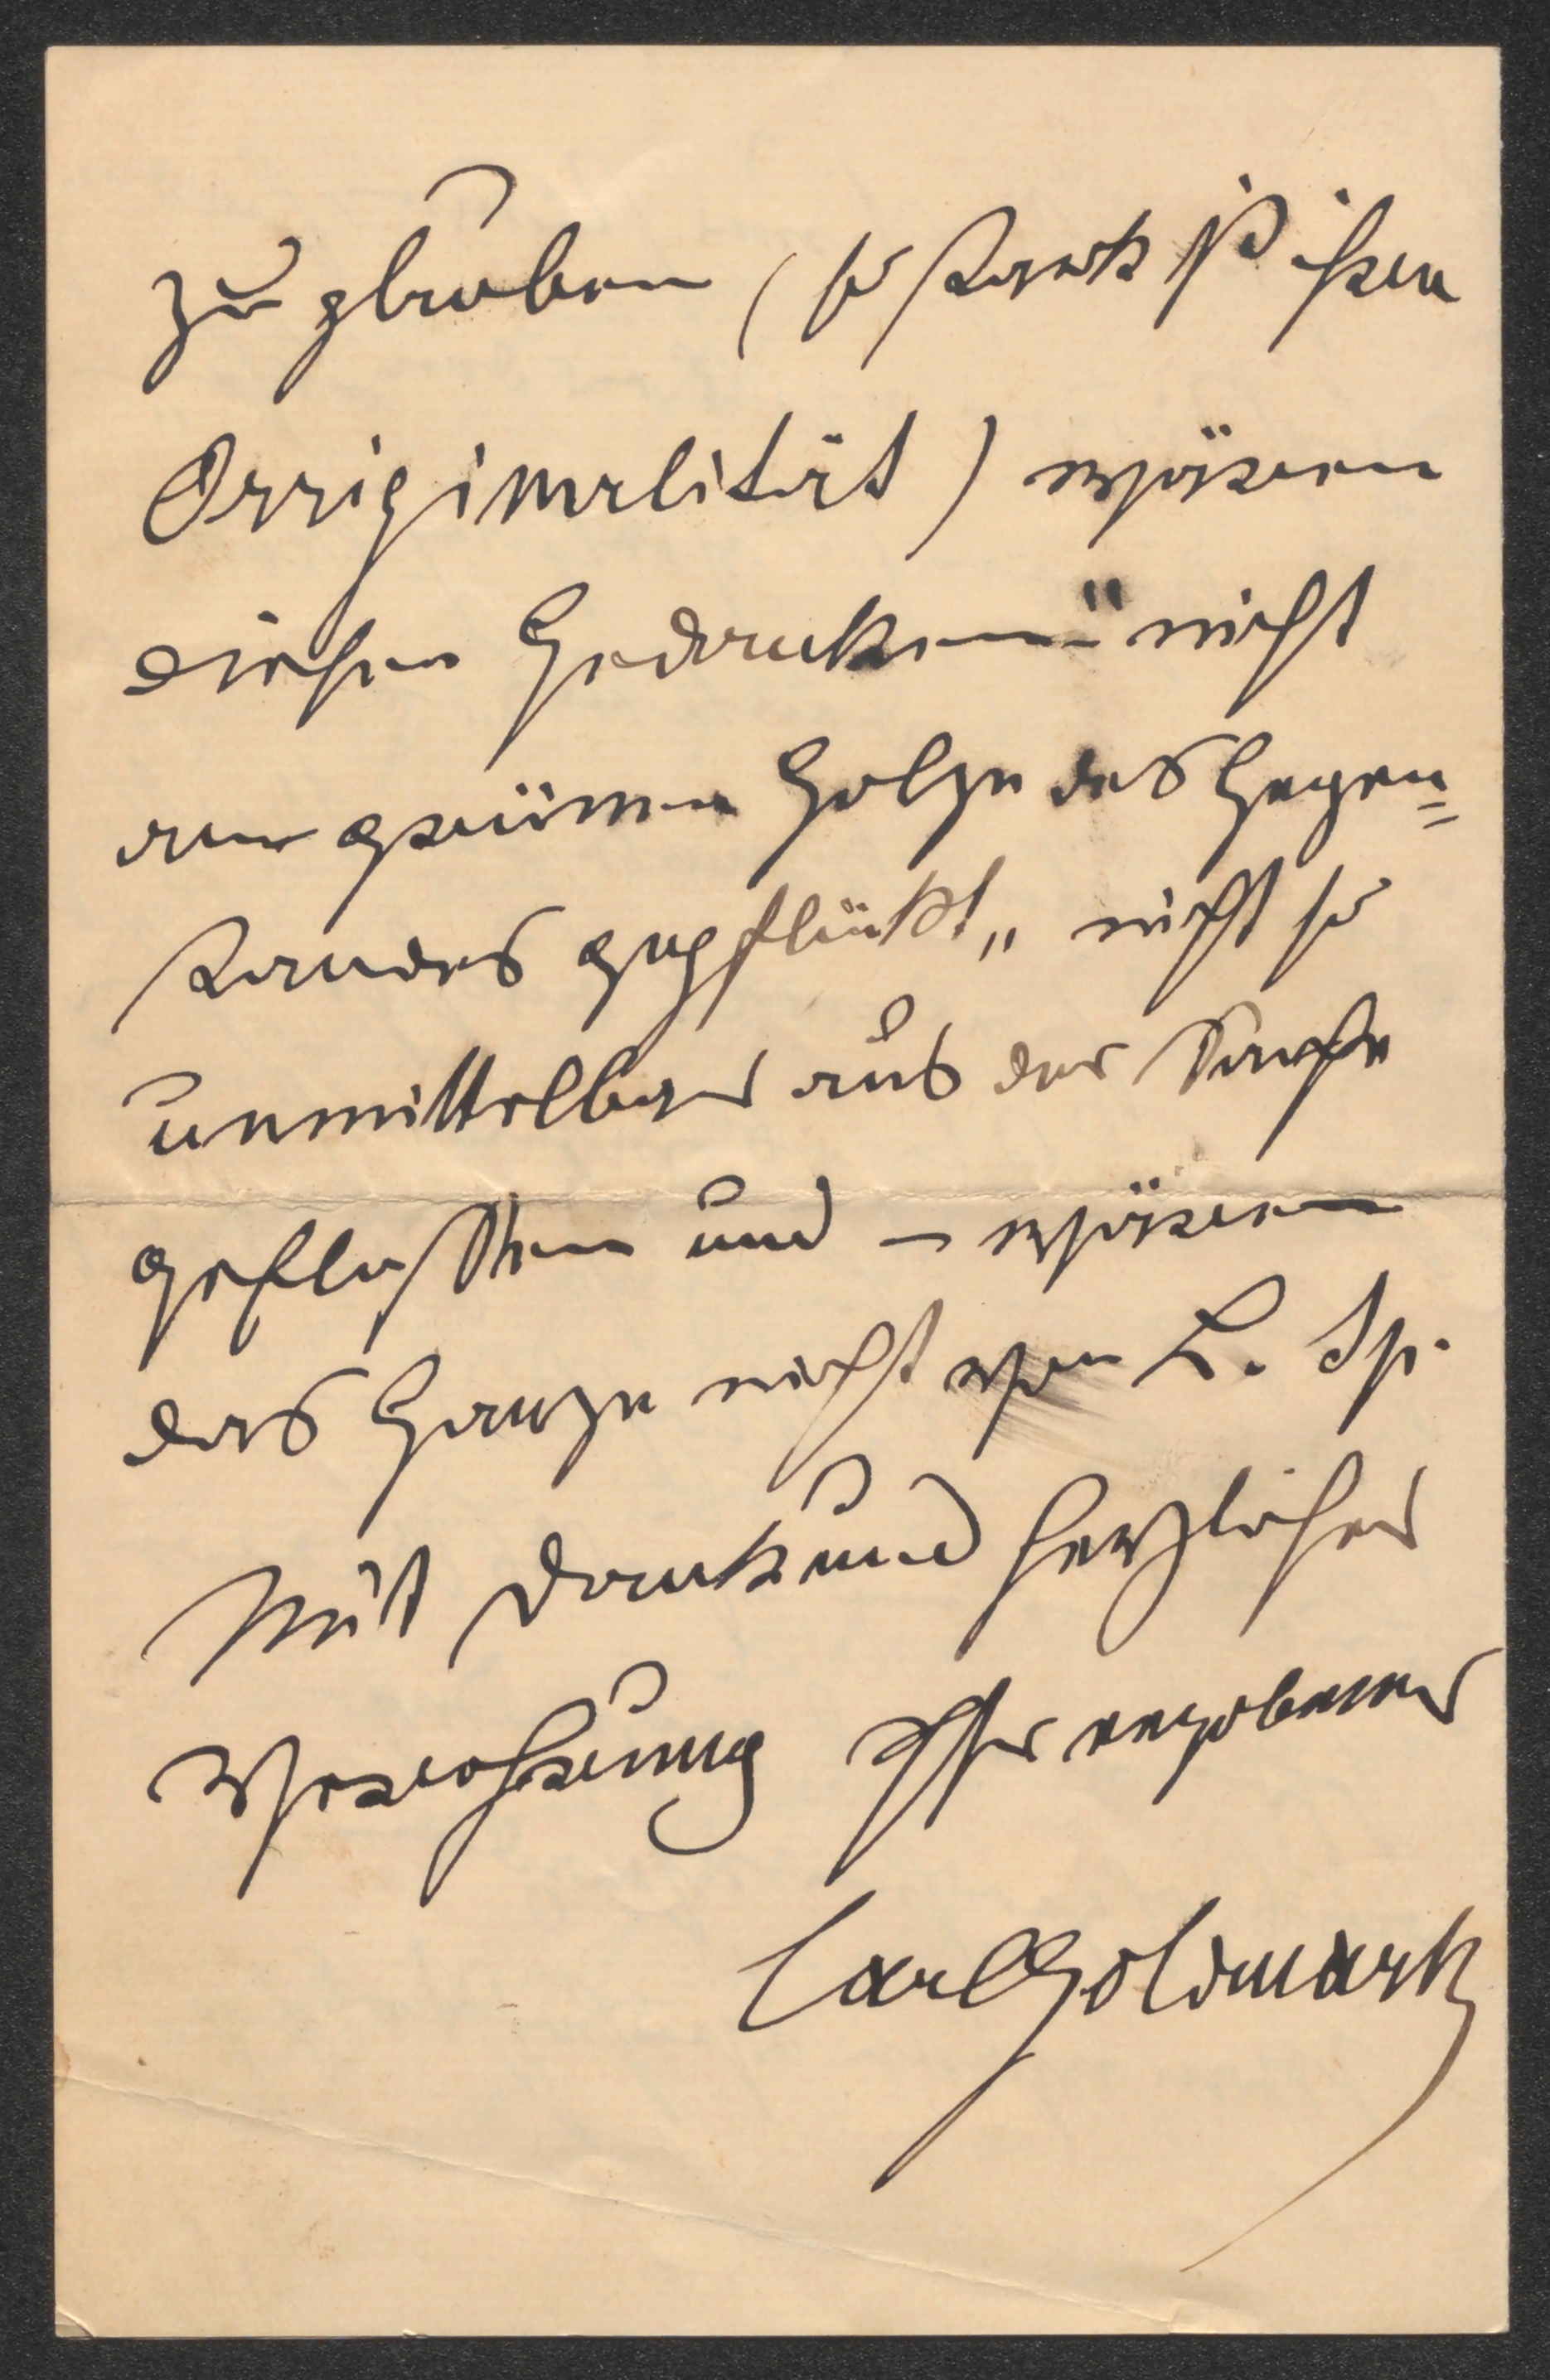 zu glauben (so stark ist ihre
Orriginalität) wären
diese Gedanken "nicht
am grünen Holze des Gegen=
standes gepflückt„ nicht so
unmittelbar aus der Sache
geflossen und – wären
das Ganze nicht von L. Sp.
Mit Dank und herzlicher
Verehrung Ihr ergebener
Carl Goldmark